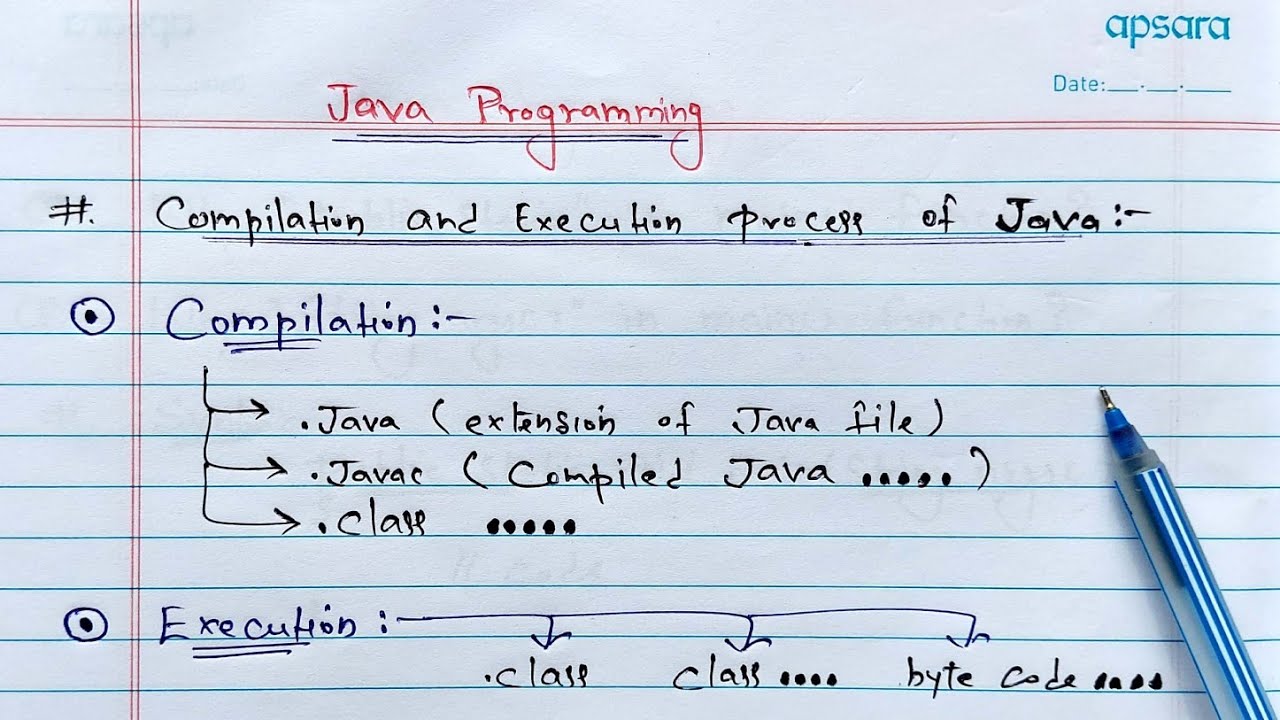 apsara
Date:__.__.__
Java Programming
#. Compilation and Execution process of Java:-
Compilation:-
.Java (extension of Java file)
.Javac (Compiled Java .....)
.class .....
Execution:-
.class class .... byte code ....